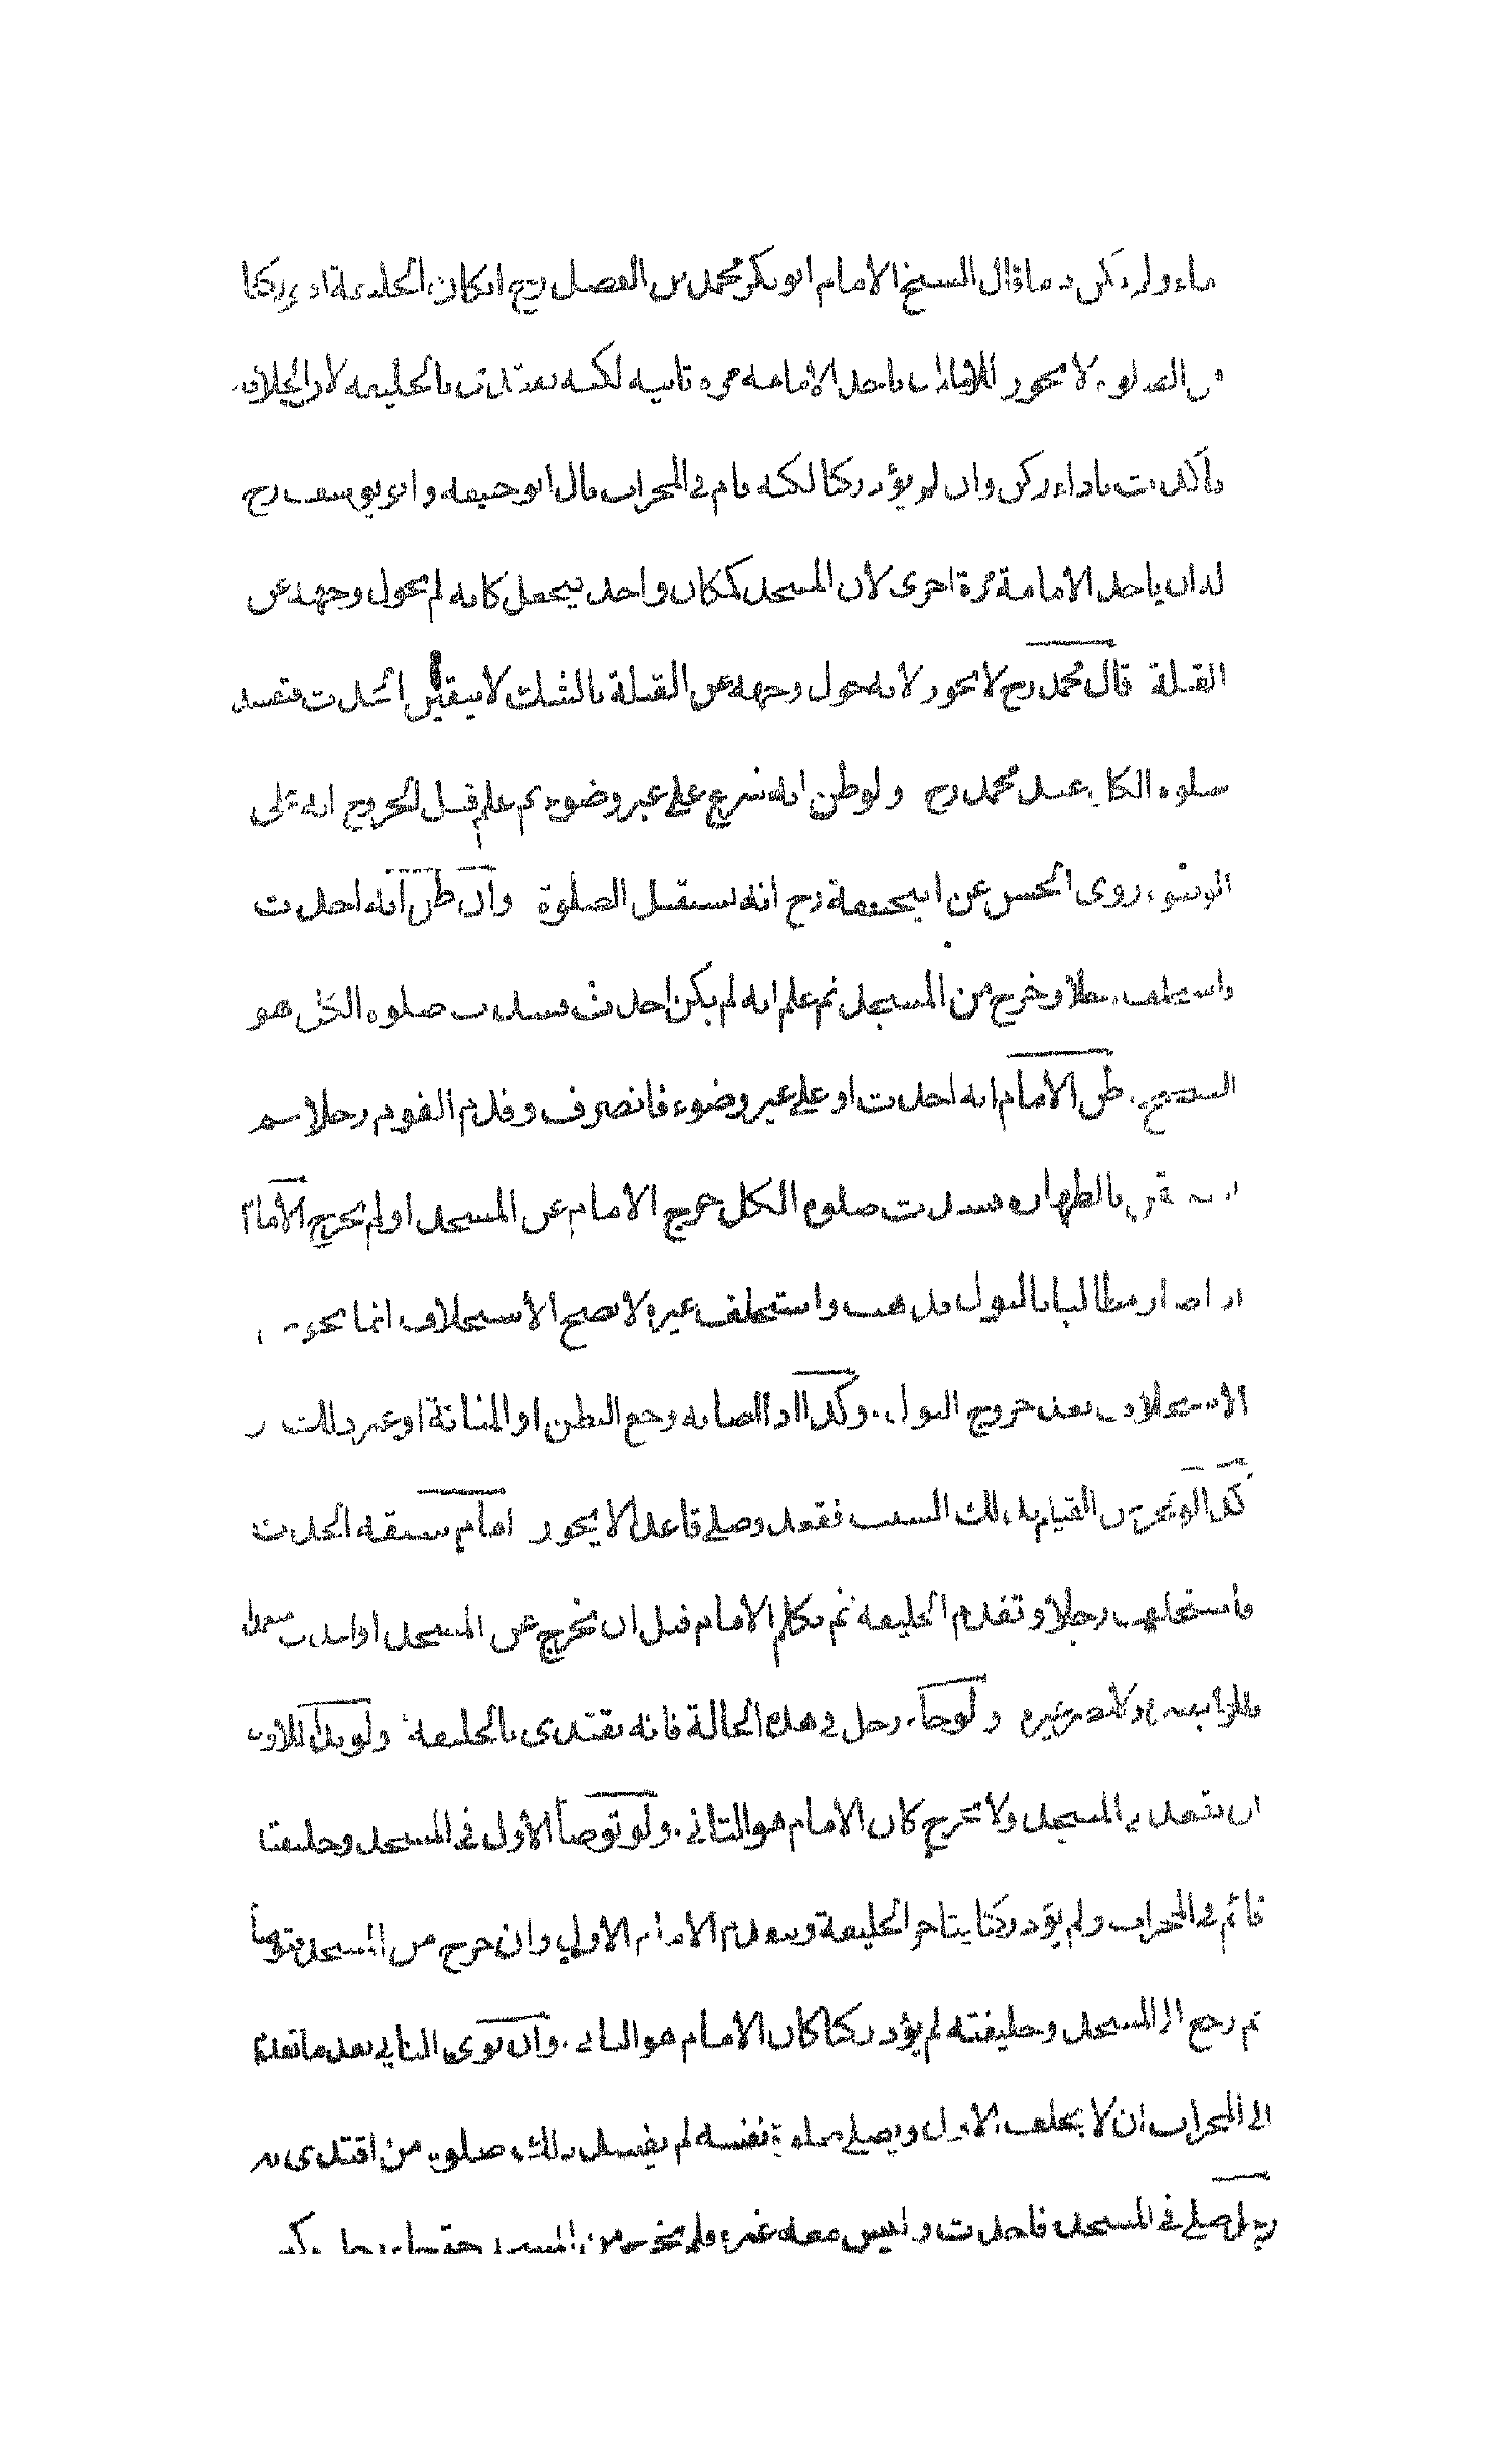 ماء ولم يكن قال الشيخ الامام ابو بكر محمد بن الفضل رح ان كان الخليفة ادى ركنا
من الصلوة لا يجوز للامام ان ياخذ الامامة مرة ثانية لكنه يقتدى بالخليفة لان الخلافة
تأكدت باداء ركن وان لم يؤد ركنا لكنه قام في المحراب قال ابو حنيفة وابو يوسف رح
له ان ياخذ الامامة مرة اخرى لان المسجد كمكان واحد فيجعل كانه لم يحول وجهه عن
القبلة قال محمد رح لا يجوز لانه حول وجهه عن القبلة بالشك لا بيقين الحدث فتفسد
صلوة الكل عند محمد رح ولو ظن انه شرع على غير وضوء ثم علم قبل الخروج انه على
الوضوء روى الحسن عن ابيحنيفة رح انه يستقبل الصلوة وان ظن انه احدث
واستخلف رجلا وخرج من المسجد ثم علم انه لم يكن احدث فسدت صلوة الكل هو
الصحيح. ظن الامام انه احدث او على غير وضوء فانصرف وقدم القوم رجلا ثم
استيقن بالطهارة فسدت صلوة الكل خرج الامام عن المسجد او لم يخرج الامام
اذا صار مطالبا بالبول فذهب واستخلف غيره لا يصح الاستخلاف انما يجوز
الاستخلاف بعد خروج البول. وكذا اذا اصابه وجع البطن او المثانة او غير ذلك
كذا لو عجز عن القيام بذلك السبب فقعد وصلى قاعدا لا يجوز امام سبقه الحدث
فاستخلف رجلا وتقدم الخليفة ثم تكلم الامام قبل ان يخرج عن المسجد او احدث متعمدا
قالوا يضره ولا يضر غيره ولو جاء رجل في هذه الحالة فانه يقتدى بالخليفة ولو بدا للاول
ان يقعد في المسجد ولا يخرج كان الامام هو الثاني. ولو توضأ الاول في المسجد وخليفته
قائم في المحراب ولم يؤد ركنا يتاخر الخليفة ويتقدم الامام الاول وان خرج من المسجد فتوضأ
ثم رجع الى المسجد وخليفته لم يؤد ركنا كان الامام هو الثاني. وان نوى الثاني بعد ما تقدم
الى المحراب ان لا يخلف الاول ويصلي صلوة نفسه لم يفسد ذلك صلوة من اقتدى به
رجل صلى في المسجد فاحدث وليس معه غيره ولم يخرج من المسجد حتى جاء رجل وكبر